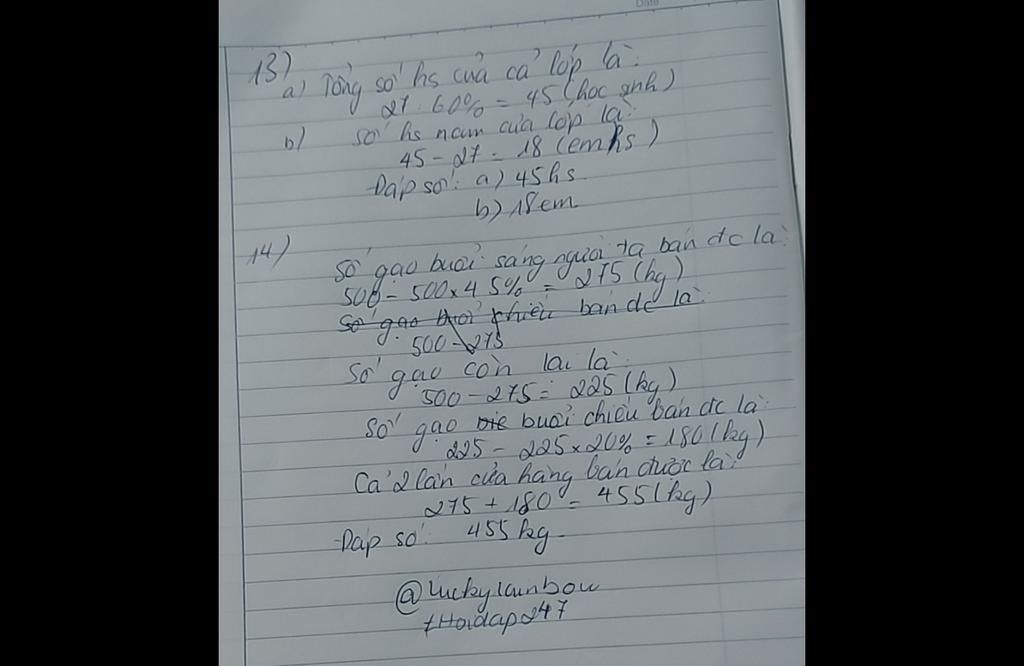 Date
13)
a) Tổng số hs của cả lớp là:
27 : 60% = 45 (học sinh)
b) Số hs nam của lớp là:
45 - 27 = 18 (em hs)
Đáp số: a) 45 hs
b) 18 em
14)
Số gạo buổi sáng người ta bán đc là:
500 - 500 x 45% = 275 (kg)
Số gạo buổi chiều bán đc là:
500 - 275
Số gạo còn lại là:
500 - 275 = 225 (kg)
Số gạo buổi chiều bán đc là:
225 - 225 x 20% = 180 (kg)
Cả 2 lần cửa hàng bán được là:
275 + 180 = 455 (kg)
Đáp số: 455 kg
@luckyrainbow
#Hoidap247